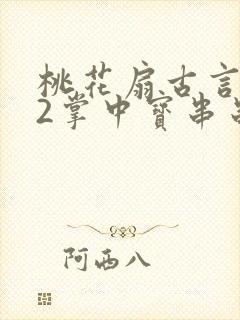 桃花扇古言
2掌中寳串
阿西八